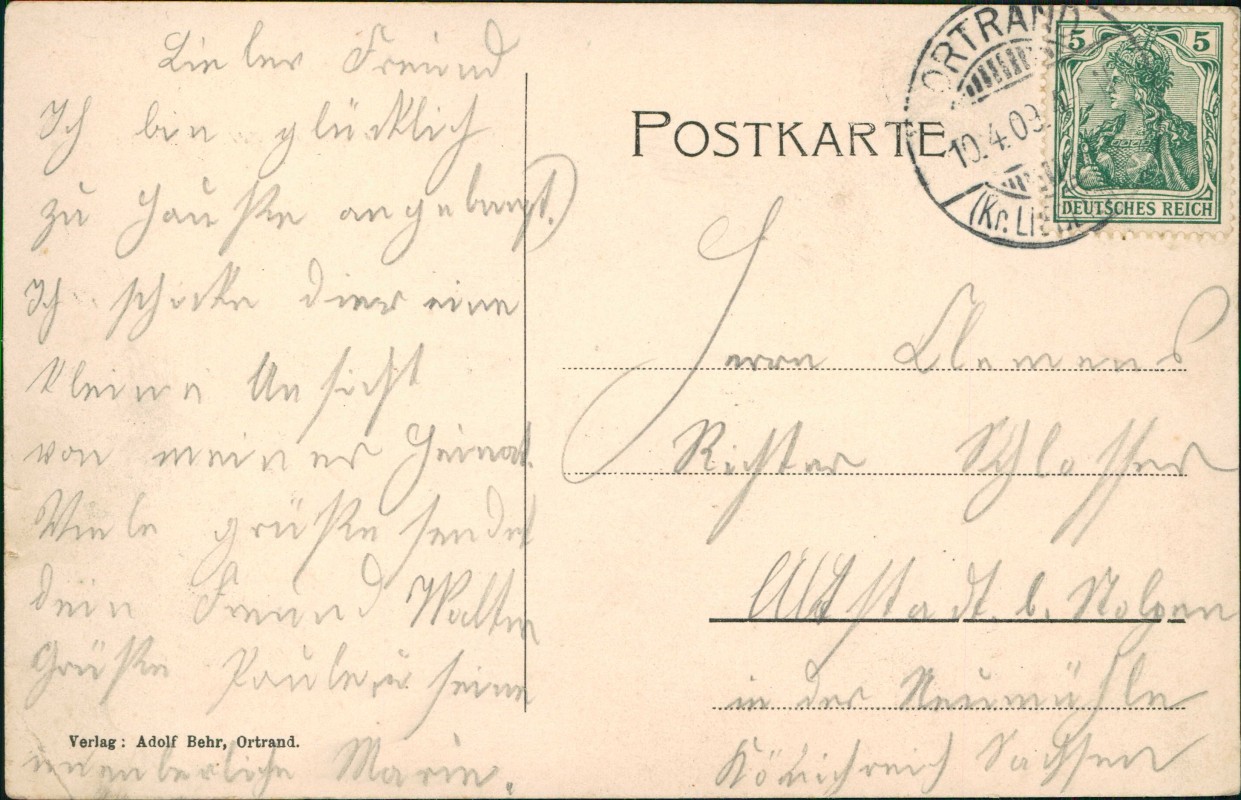 Lieber Freund
Ich bin glücklich
zu Hauße angelangt.
Ich schicke dier eine
kleine Ansicht
von meiner Heimat.
Viele grüße sendet
dein Freund Walter
Grüße Paule, u seine
Marie.
Verlag: Adolf Behr, Ortrand.
POSTKARTE
ORTRAND
10.4.09.
(Kr. Lieb
5 5
DEUTSCHES REICH
Herrn Clemens
Richter Schlosser
Altstadt b. Stolpen
in der Neumühle
Königreich Sachsen